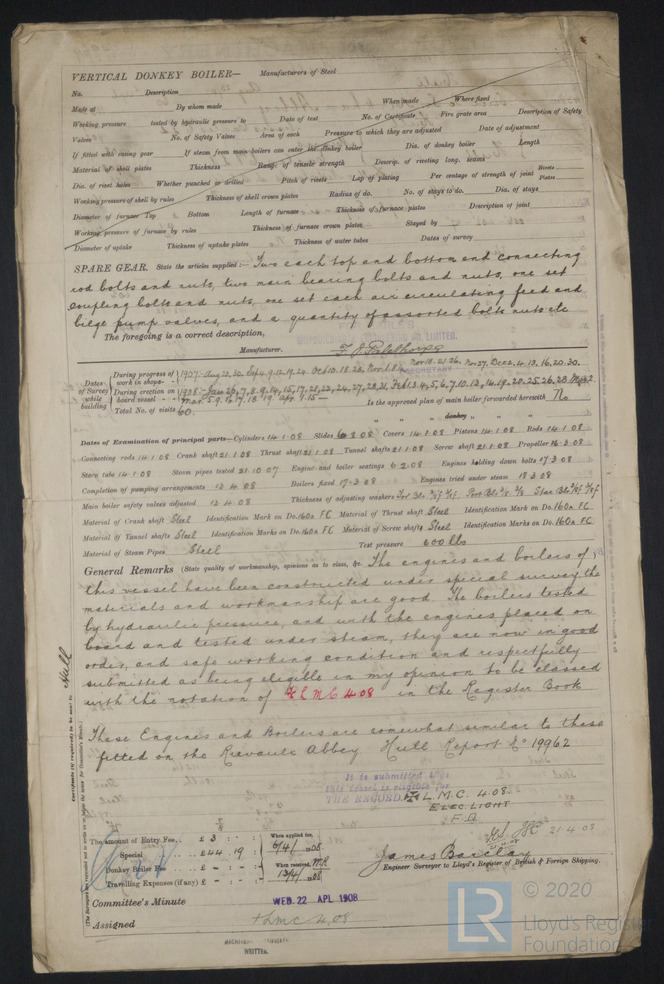 VERTICAL DONKEY BOILER— Manufacturers of Steel
No. Description
Made at By whom made When made Where fixed
Working pressure tested by hydraulic pressure to Date of test No. of Certificate Fire grate area Description of Safety
Valves No. of Safety Valves Area of each Pressure to which they are adjusted Date of adjustment
If fitted with easing gear If steam from main boilers can enter the donkey boiler Dia. of donkey boiler Length
Material of shell plates Thickness Range of tensile strength Descrip. of riveting long. seams
Dia. of rivet holes Whether punched or drilled Pitch of rivets Lap of plating Per centage of strength of joint Rivets Plates
Working pressure of shell by rules Thickness of shell crown plates Radius of do. No. of stays to do. Dia. of stays
Diameter of furnace Top Bottom Length of furnace Thickness of furnace plates Description of joint
Working pressure of furnace by rules Thickness of furnace crown plates Stayed by
Diameter of uptake Thickness of uptake plates Thickness of water tubes Dates of survey
SPARE GEAR. State the articles supplied:— Two each top and bottom end connecting
rod bolts and nuts, two main bearing bolts and nuts, one set
coupling bolts and nuts, one set each air circulating feed and
bilge pump valves, and a quantity of assorted bolts nuts etc
The foregoing is a correct description,
Manufacturer.
SECRETARY
Dates of Survey while building
During progress of work in shops— 1907. Aug 23. 30. Sep 4. 9. 12. 17. 24. Oct 10. 18. 23. Nov 18. 21. 26. Nov 27. Dec 2. 4. 13. 16. 20. 30.
During erection on board vessel— 1908:— Jan
Total No. of visits 60. Is the approved plan of main boiler forwarded herewith No
" " " donkey " " "
Dates of Examination of principal parts—Cylinders 14.1.08 Slides 6.2.08 Covers 14.1.08 Pistons 14.1.08 Rods 14.1.08
Connecting rods 14.1.08 Crank shaft 21.1.08 Thrust shaft 21.1.08 Tunnel shafts 21.1.08 Screw shaft 21.1.08 Propeller 16.3.08
Stern tube 14.1.08 Steam pipes tested 21.10.07 Engine and boiler seatings 6.2.08 Engines holding down bolts 17.3.08
Completion of pumping arrangements 13.4.08 Boilers fixed 17.3.08 Engines tried under steam 18.3.08
Main boiler safety valves adjusted 13.4.08 Thickness of adjusting washers
Material of Crank shaft Steel Identification Mark on Do. 160A FC Material of Thrust shaft Steel Identification Mark on Do. 160A FC
Material of Tunnel shafts Steel Identification Marks on Do. 160A FC Material of Screw shafts Steel Identification Marks on Do. 160A FC
Material of Steam Pipes Steel Test pressure 600 lbs
General Remarks (State quality of workmanship, opinions as to class, &c. The engines and boilers of
this vessel have been constructed under special survey, the
materials and workmanship are good. The boilers tested
by hydraulic pressure, and with the engines placed on
board and tested under steam, they are now in good
order, and safe working condition and respectfully
submitted as being eligible in my opinion to be classed
with the notation of L M C 4.08 in the Register Book
These Engines and Boilers are somewhat similar to those
fitted on the Rievaulx Abbey Hull Report No 19962
Certificate (if required) to be sent to Hull
It is submitted that
this vessel is eligible for
THE RECORD. L.M.C. 4.08.
ELEC. LIGHT
F.D.
21.4.08
The amount of Entry Fee.. £ 3 : : When applied for,
Special £44 19 : 6/4/1908
Donkey Boiler Fee £ – : : When received,
Travelling Expenses (if any) £ – : : 13/4/1908
James Barclay
Engineer Surveyor to Lloyd's Register of British & Foreign Shipping.
Committee's Minute WED. 22 APL 1908
Assigned + LMC 4.08
MACHINERY CERTIFICATE
WRITTEN.
© 2020
LR
Lloyd's Register
Foundation